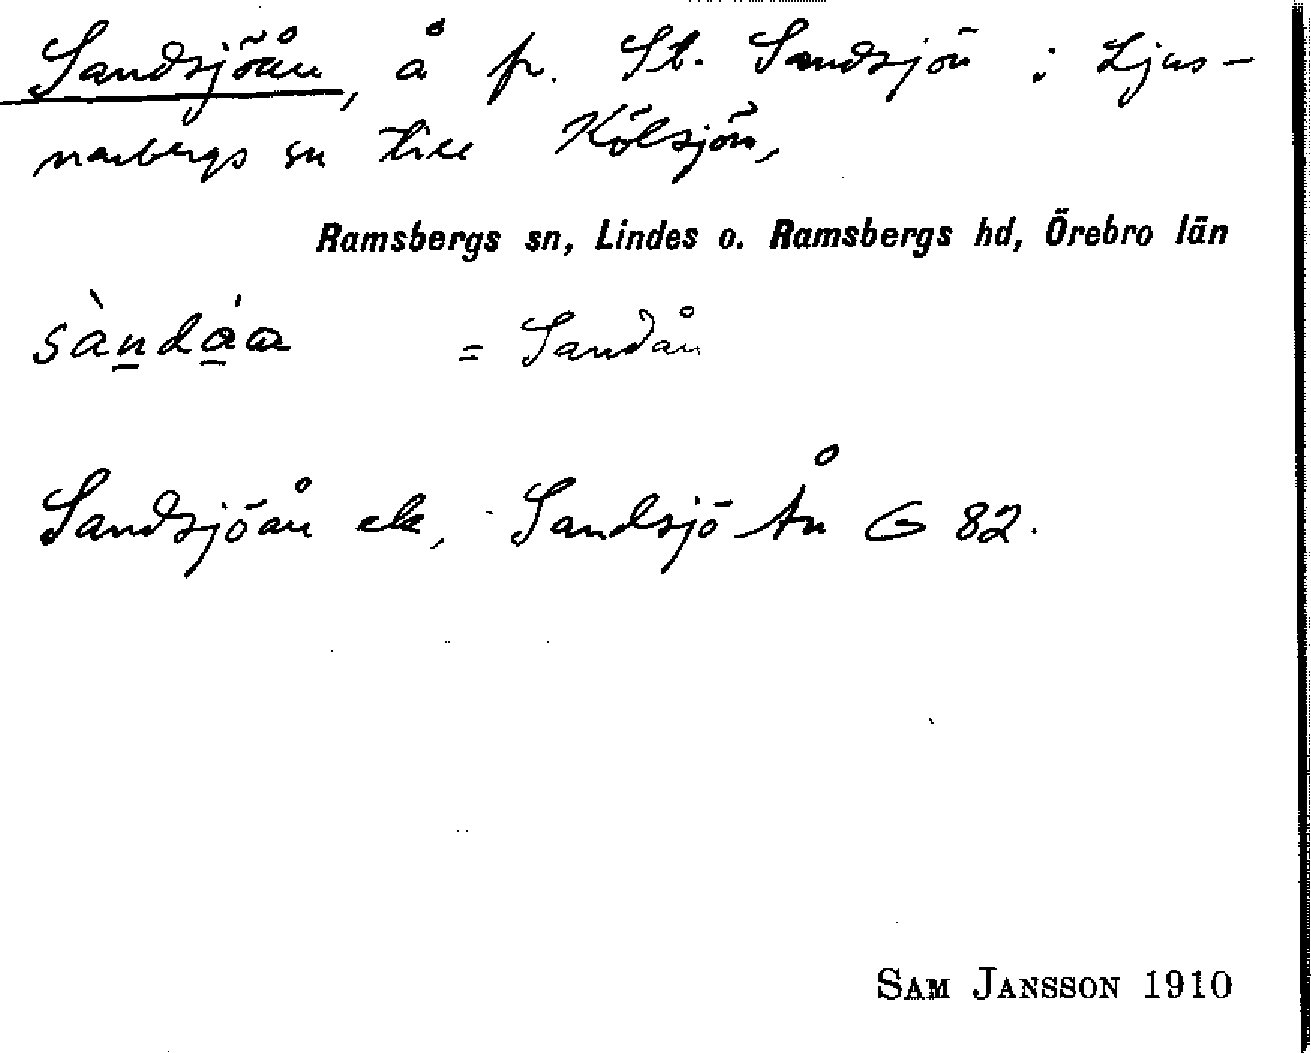 Sandsjöån, å fr. St. Sandsjön i Ljus-
narbergs sn till Kölsjön,
Ramsbergs sn, Lindes o. Ramsbergs hd, Örebro län
sàndáa = Sandån
Sandsjöån ek, Sandsjö Ån G 82.
SAM JANSSON 1910